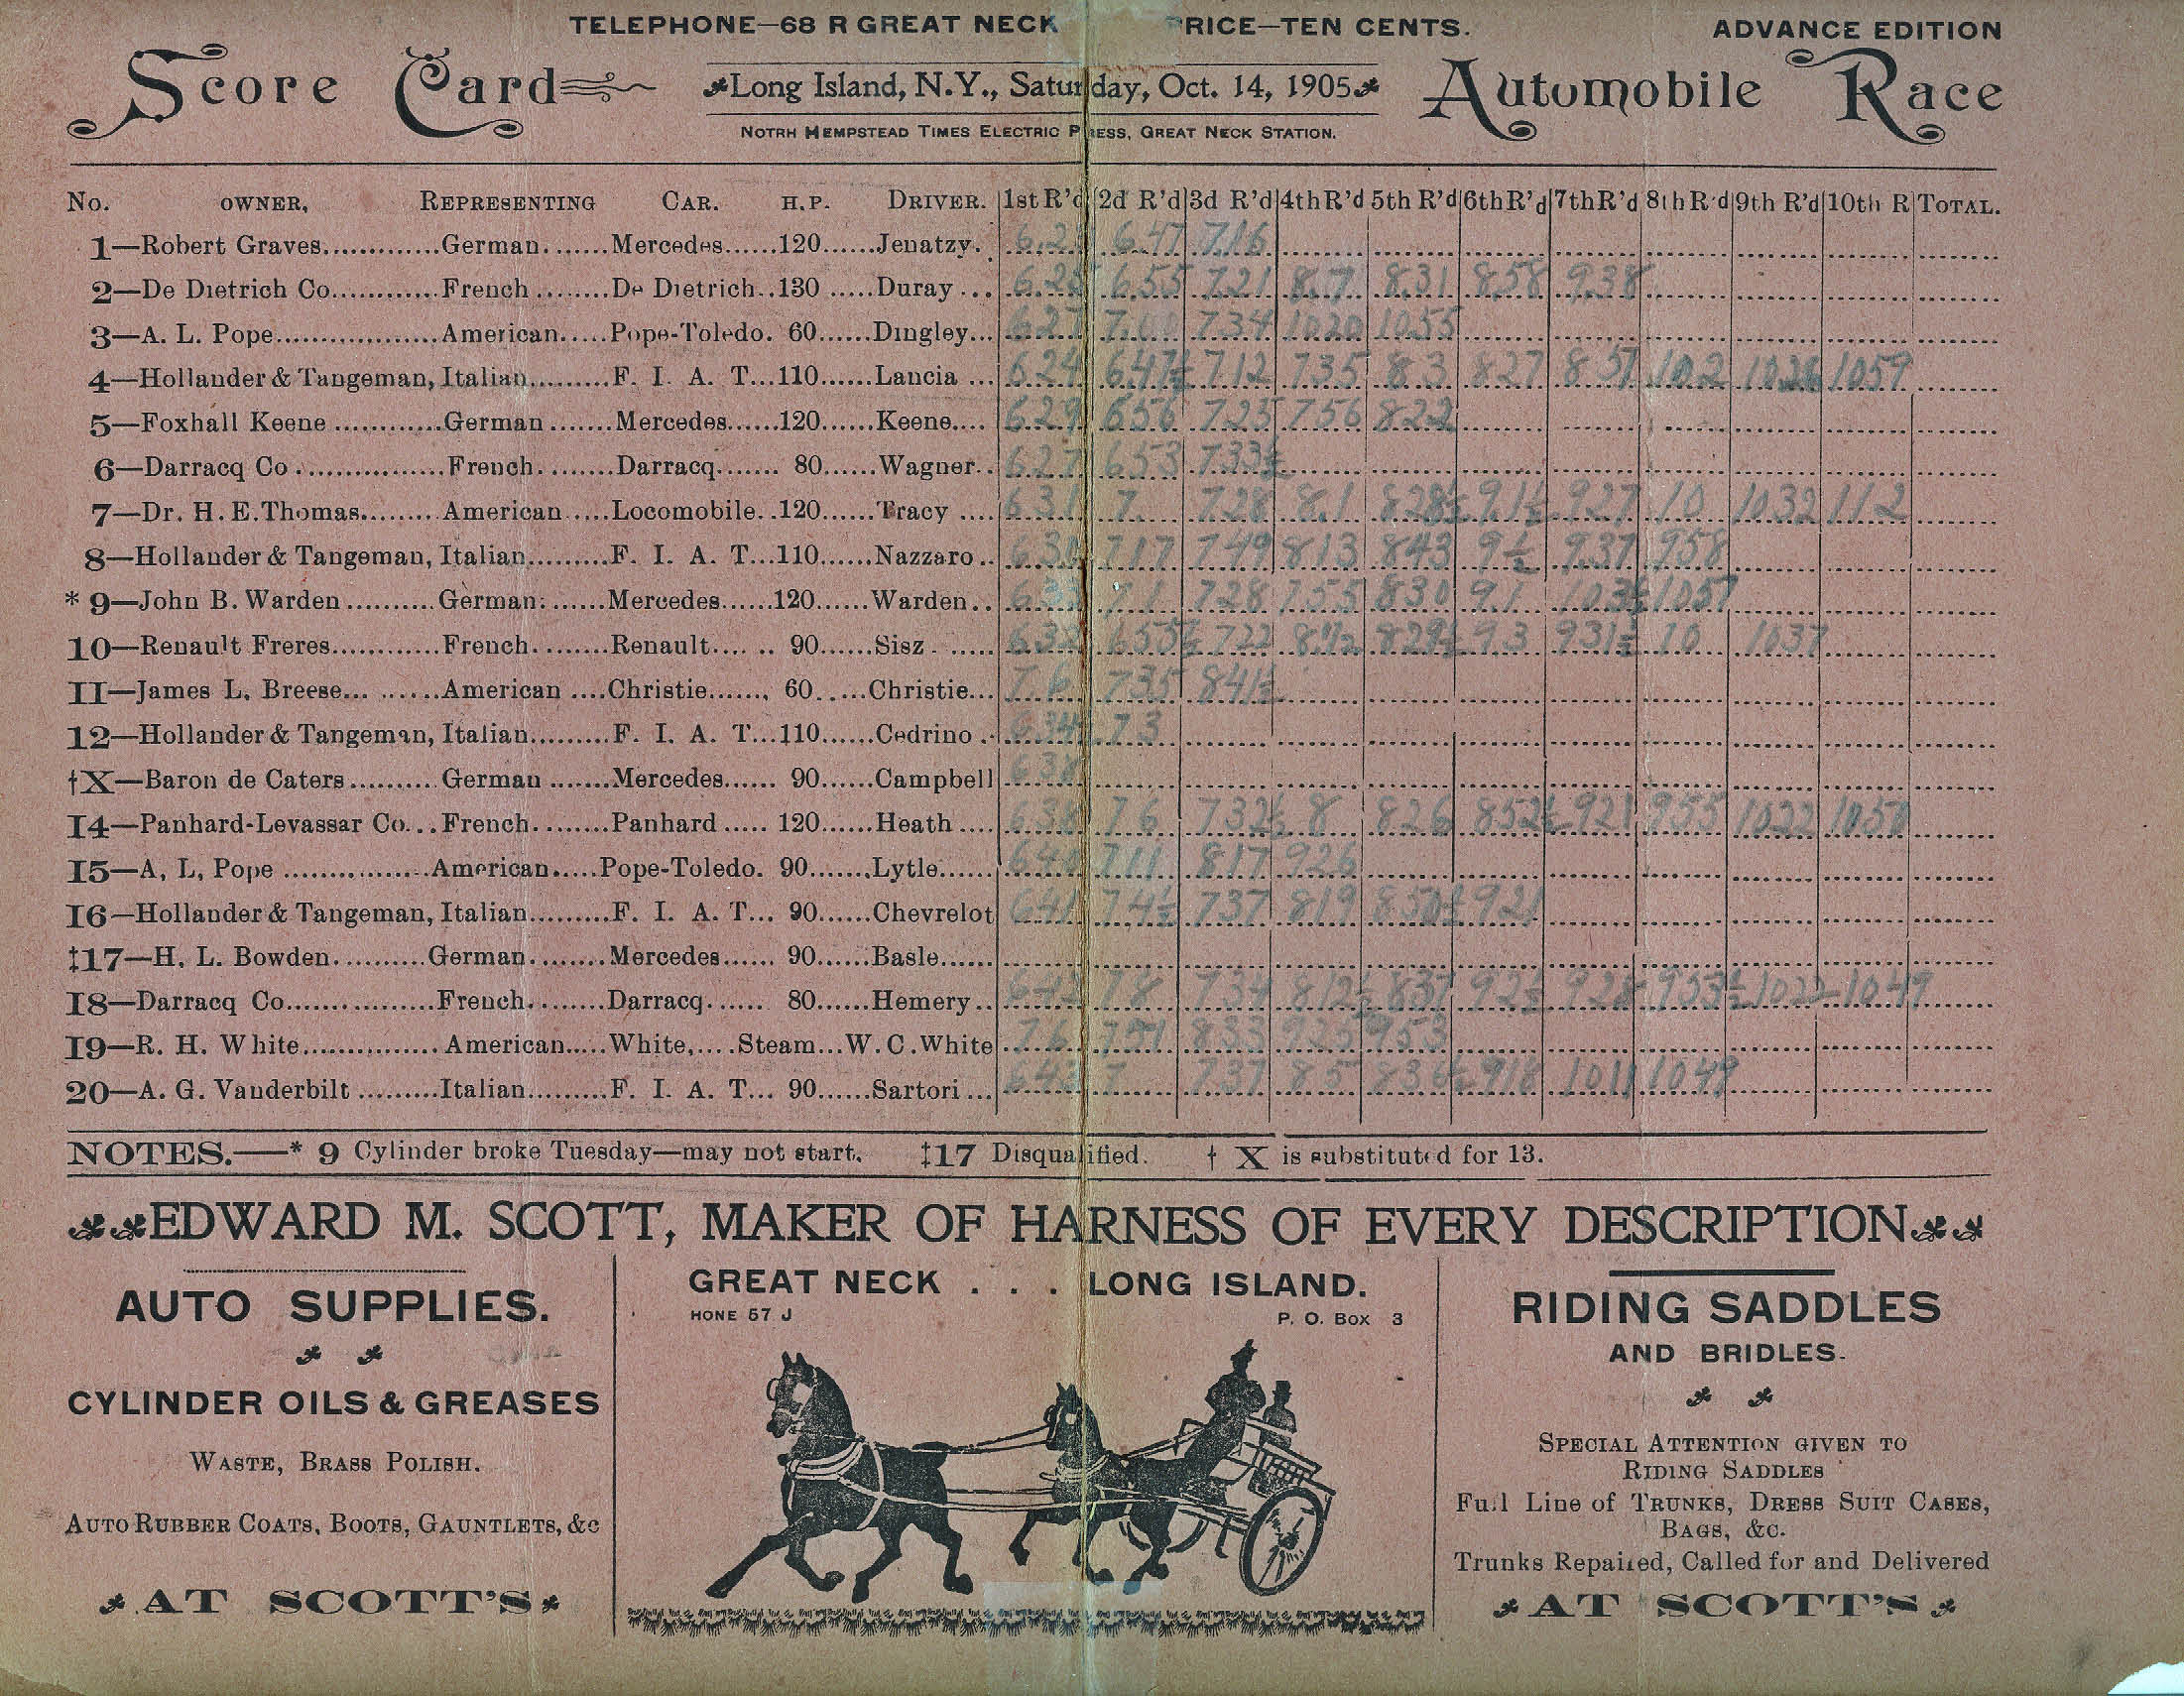 TELEPHONE—68 R GREAT NECK PRICE—TEN CENTS. ADVANCE EDITION
Score Card Long Island, N.Y., Saturday, Oct. 14, 1905 Automobile Race
NOTRH HEMPSTEAD TIMES ELECTRIC PRESS, GREAT NECK STATION.
No. OWNER, REPRESENTING CAR. H.P. DRIVER. 1st R'd 2d R'd 3d R'd 4th R'd 5th R'd 6th R'd 7th R'd 8th R'd 9th R'd 10th R TOTAL.
1—Robert Graves.............German.......Mercedes......120......Jenatzy. 6.47 7.16
2—De Dietrich Co............French.........De Dietrich..130......Duray... 6.25 6.55 7.21 8.7 8.31 8.58 9.38
3—A. L. Pope..................American.....Pope-Toledo. 60......Dingley... 6.27 7.00 734 1020 1055
4—Hollander & Tangeman, Italian.........F. I. A. T...110......Lancia ... 6.24 6.47½ 712 735 83 827 857 102 1026 1059
5—Foxhall Keene ............German.......Mercedes......120......Keene.... 629 656 725 756 822
6—Darracq Co.................French.........Darracq....... 80......Wagner.. 627 653 733½
7—Dr. H. E. Thomas.........American.....Locomobile..120......Tracy .... 631 7 728 8.1 828½ 91½ 927 10 1032 112
8—Hollander & Tangeman, Italian.........F. I. A. T...110......Nazzaro.. 631 717 749 813 843 9½ 937 958
* 9—John B. Warden..........German.......Mercedes......120......Warden.. 633 71 728 755 830 91 103½ 1057
10—Renault Freres............French.........Renault...... 90......Sisz...... 632 655½ 722 8½ 829½ 93 931½ 10 1037
11—James L. Breese.........American ....Christie......, 60......Christie... 7.6 735 841½
12—Hollander & Tangeman, Italian.........F. I. A. T...110......Cedrino.. 634½ 73
†X—Baron de Caters..........German.......Mercedes...... 90......Campbell 638
14—Panhard-Levassar Co...French.........Panhard..... 120......Heath.... 638 76 732½ 8 826 852½ 921 955 1022 1057
15—A, L, Pope ................American.....Pope-Toledo. 90.......Lytle...... 640 711 817 926
16—Hollander & Tangeman, Italian.........F. I. A. T... 90......Chevrelot 641 74½ 737 819 850½ 921
‡17—H. L. Bowden..........German.........Mercedes...... 90......Basle......
18—Darracq Co................French.........Darracq...... 80......Hemery.. 642 78 734 812½ 837 92½ 928 953½ 1022 1049
19—R. H. White...............American.....White,....Steam...W. C. White 76 751 833 925 953
20—A. G. Vanderbilt .........Italian.........F. I. A. T... 90......Sartori... 643 7 737 85 836½ 918 1011 1049
NOTES.—* 9 Cylinder broke Tuesday—may not start. ‡17 Disqualified. † X is substituted for 13.
EDWARD M. SCOTT, MAKER OF HARNESS OF EVERY DESCRIPTION
AUTO SUPPLIES.
CYLINDER OILS & GREASES
WASTE, BRASS POLISH.
AUTO RUBBER COATS, BOOTS, GAUNTLETS, &c
AT SCOTT'S
GREAT NECK . . . LONG ISLAND.
HONE 57 J P. O. BOX 3
RIDING SADDLES
AND BRIDLES.
SPECIAL ATTENTION GIVEN TO
RIDING SADDLES
Full Line of TRUNKS, DRESS SUIT CASES,
BAGS, &C.
Trunks Repaired, Called for and Delivered
AT SCOTT'S